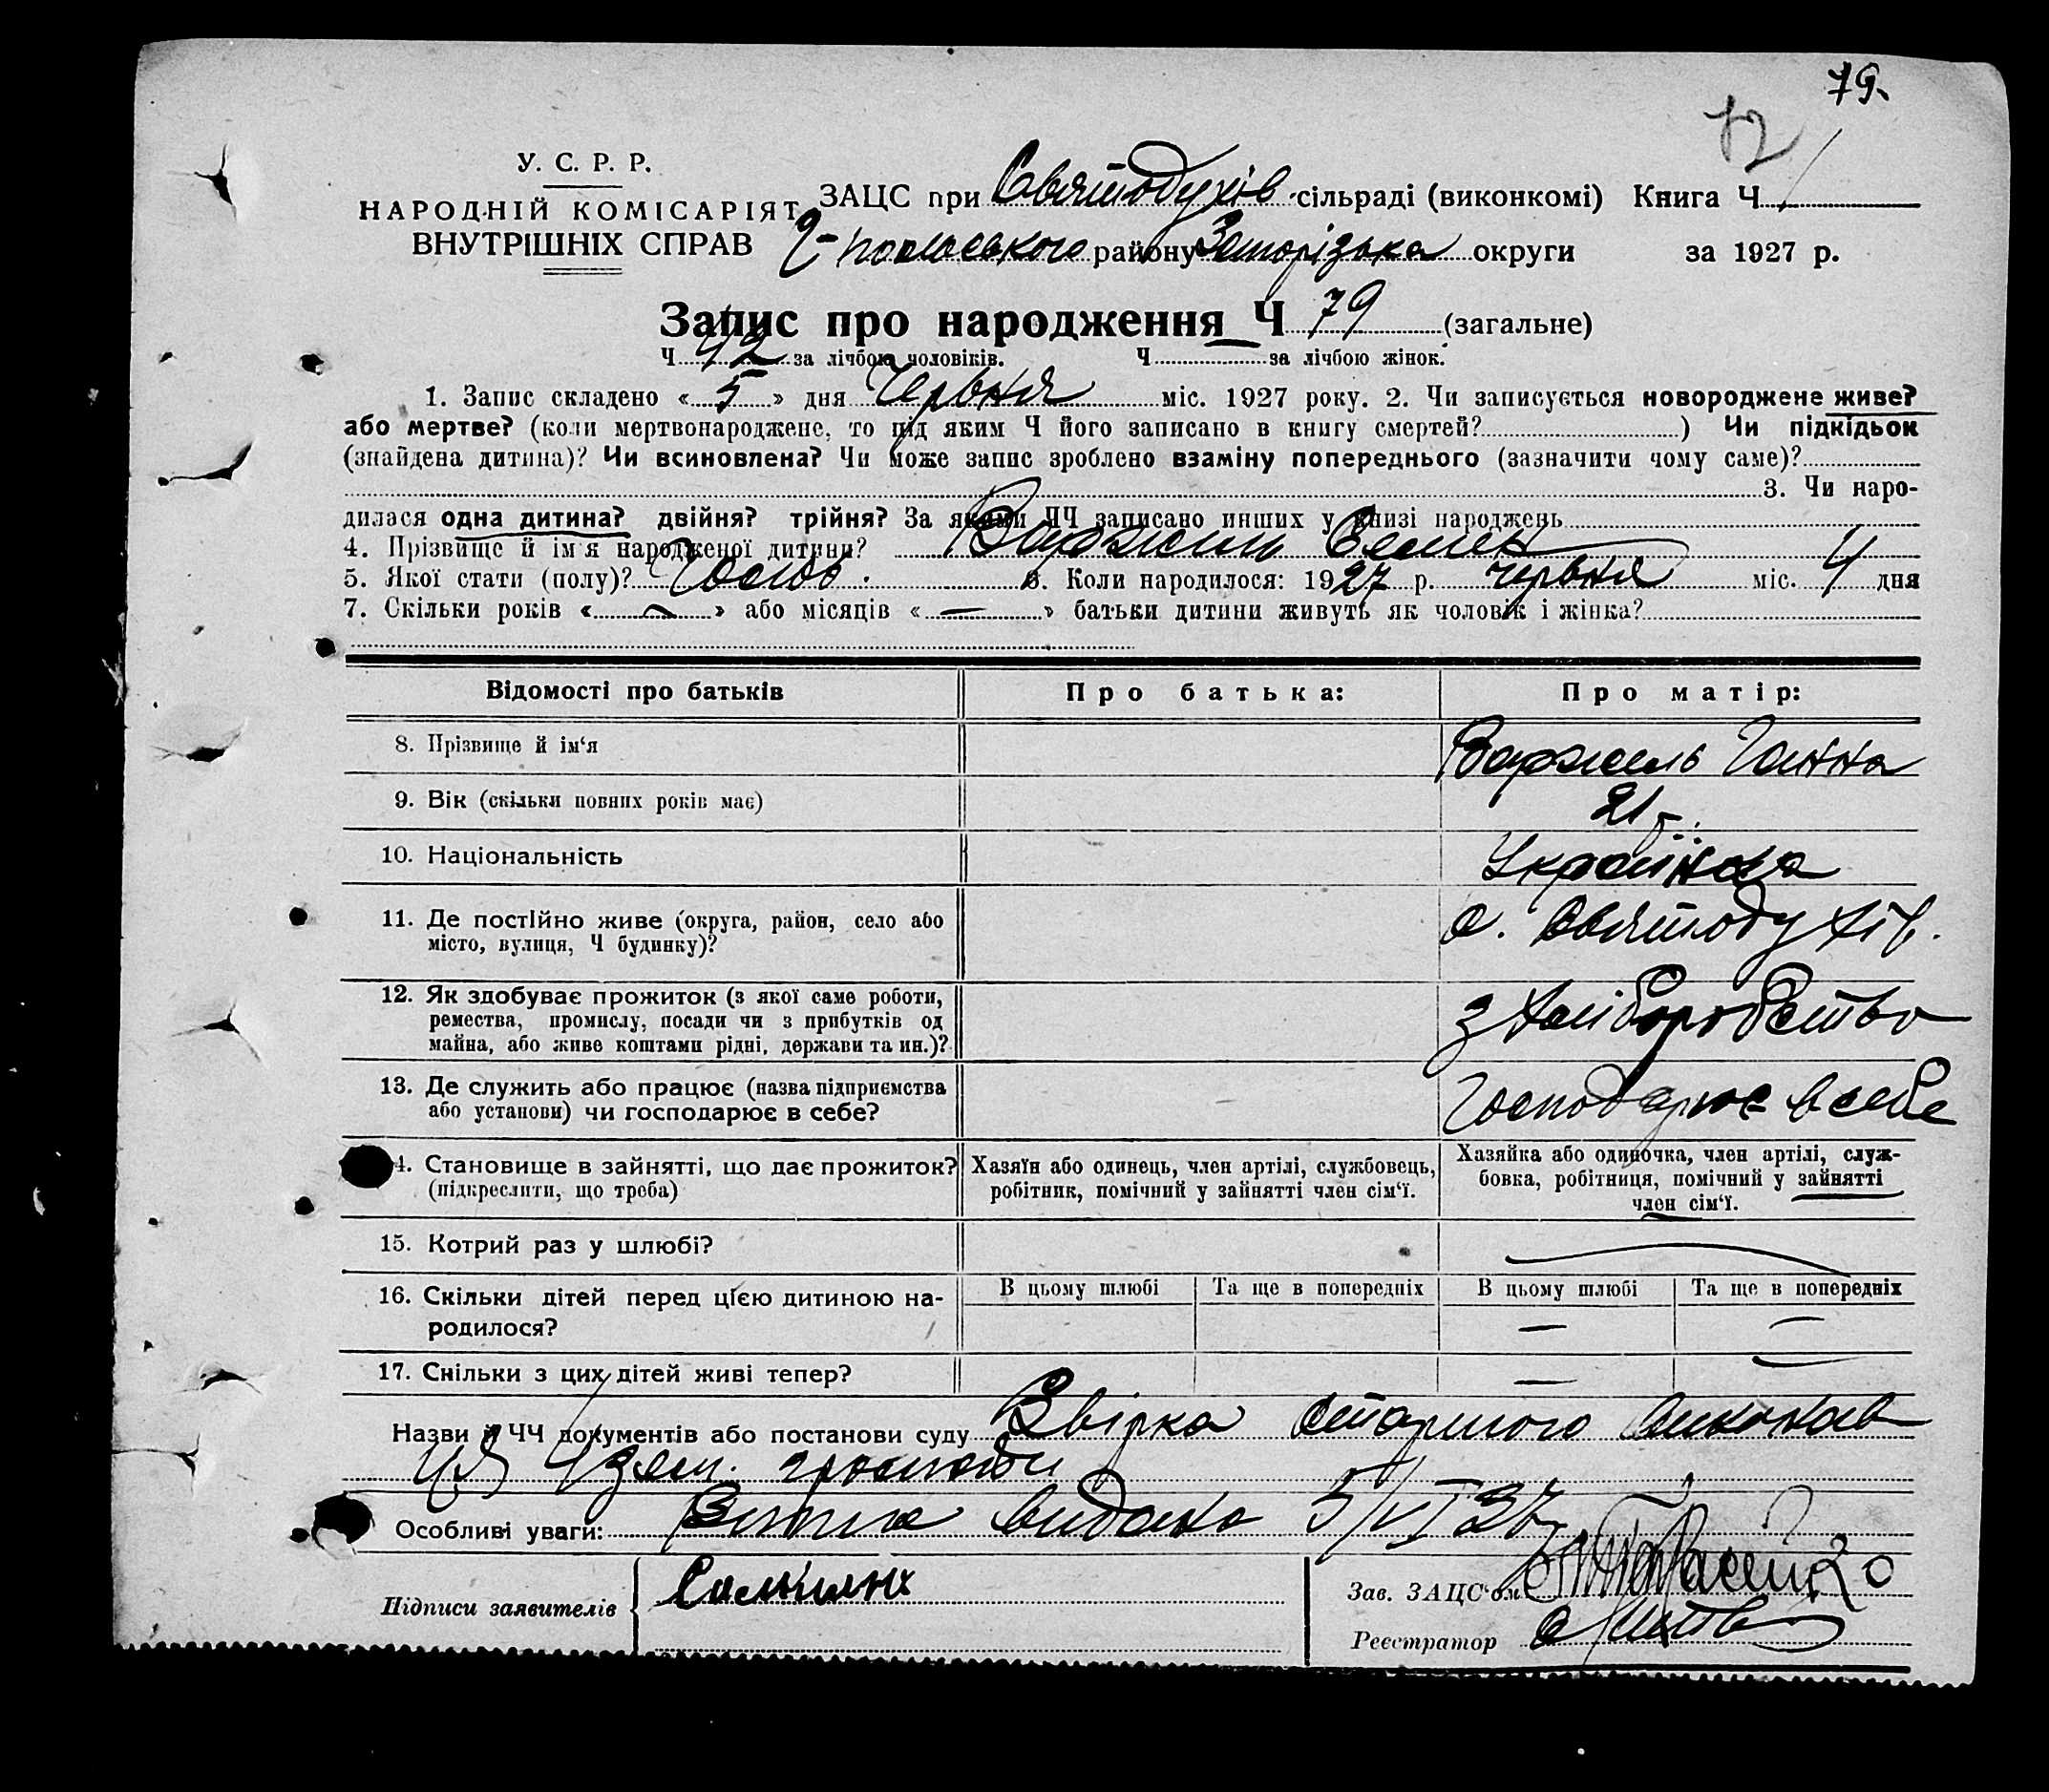 79.
72
У. С. Р. Р.
НАРОДНІЙ КОМІСАРІЯТ
ВНУТРІШНІХ СПРАВ
ЗАЦС при Святодухів сільраді (виконкомі) Книга Ч 1
району Запорізька округи за 1927 р.
Запис про народження Ч 79 (загальне)
Ч 42 за лічбою чоловіків. Ч за лічбою жінок.
1. Запис складено « 5 » дня Червня міс. 1927 року. 2. Чи записується новороджене живе?
або мертве? (коли мертвонароджене, то під яким Ч його записано в книгу смертей? ) Чи підкідьок
(знайдена дитина)? Чи всиновлена? Чи може запис зроблено взаміну попереднього (зазначити чому саме)?
3. Чи наро-
дилася одна дитина? двійня? трійня? За якими ЧЧ записано инших у книзі народжень
4. Прізвище й ім'я народженої дитини? Семен
5. Якої стати (полу)? Чолов. 6. Коли народилося: 1927 р. червня міс. 4 дня
7. Скільки років « — » або місяців « — » батьки дитини живуть як чоловік і жінка?
Відомості про батьків Про батька: Про матір:
8. Прізвище й ім'я Ганна
9. Вік (скільки повних років має) 21 р.
10. Національність Українка
11. Де постійно живе (округа, район, село або
місто, вулиця, Ч будинку)? с. Святодухів.
12. Як здобуває прожиток (з якої саме роботи,
ремества, промислу, посади чи з прибутків од
майна, або живе коштами рідні, держави та ин.)? з хліборобства
13. Де служить або працює (назва підприємства
або установи) чи господарює в себе? Господарює в себе
14. Становище в зайнятті, що дає прожиток?
(підкреслити, що треба)
Хазяїн або одинець, член артілі, службовець,
робітник, помічний у зайнятті член сім'ї.
Хазяйка або одиночка, член артілі, служ-
бовка, робітниця, помічний у зайнятті
член сім'ї.
15. Котрий раз у шлюбі? —
16. Скільки дітей перед цією дитиною на-
родилося?
В цьому шлюбі Та ще в попередніх В цьому шлюбі Та ще в попередніх
— —
17. Скільки з цих дітей живі тепер? — —
Назви й ЧЧ документів або постанови суду Звірка
зем. громади
Особливі уваги: Витяг видано 5/VI 27
Підписи заявителів
Зав. ЗАЦС'ом
Реєстратор